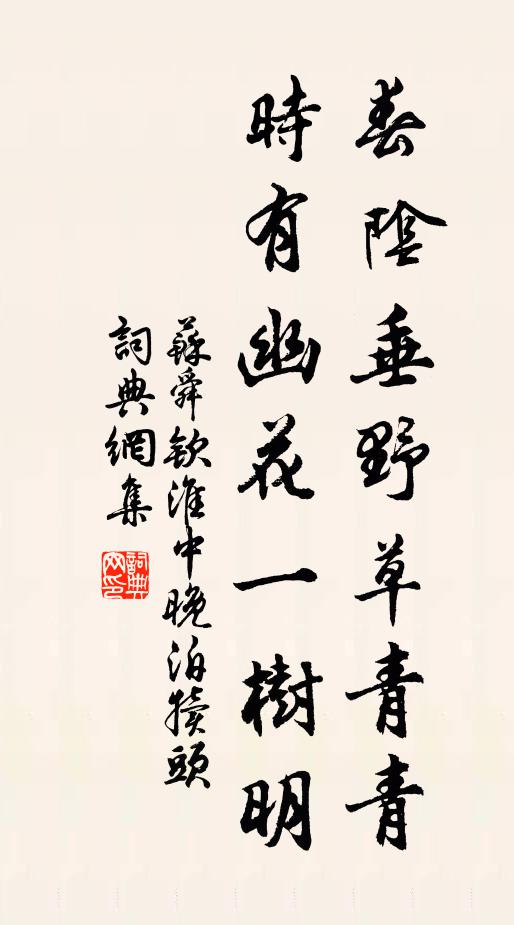 春陰垂野草青青
時有幽花一樹明
蘇舜欽淮中晚泊犢頭
詞典網集
詞典网印